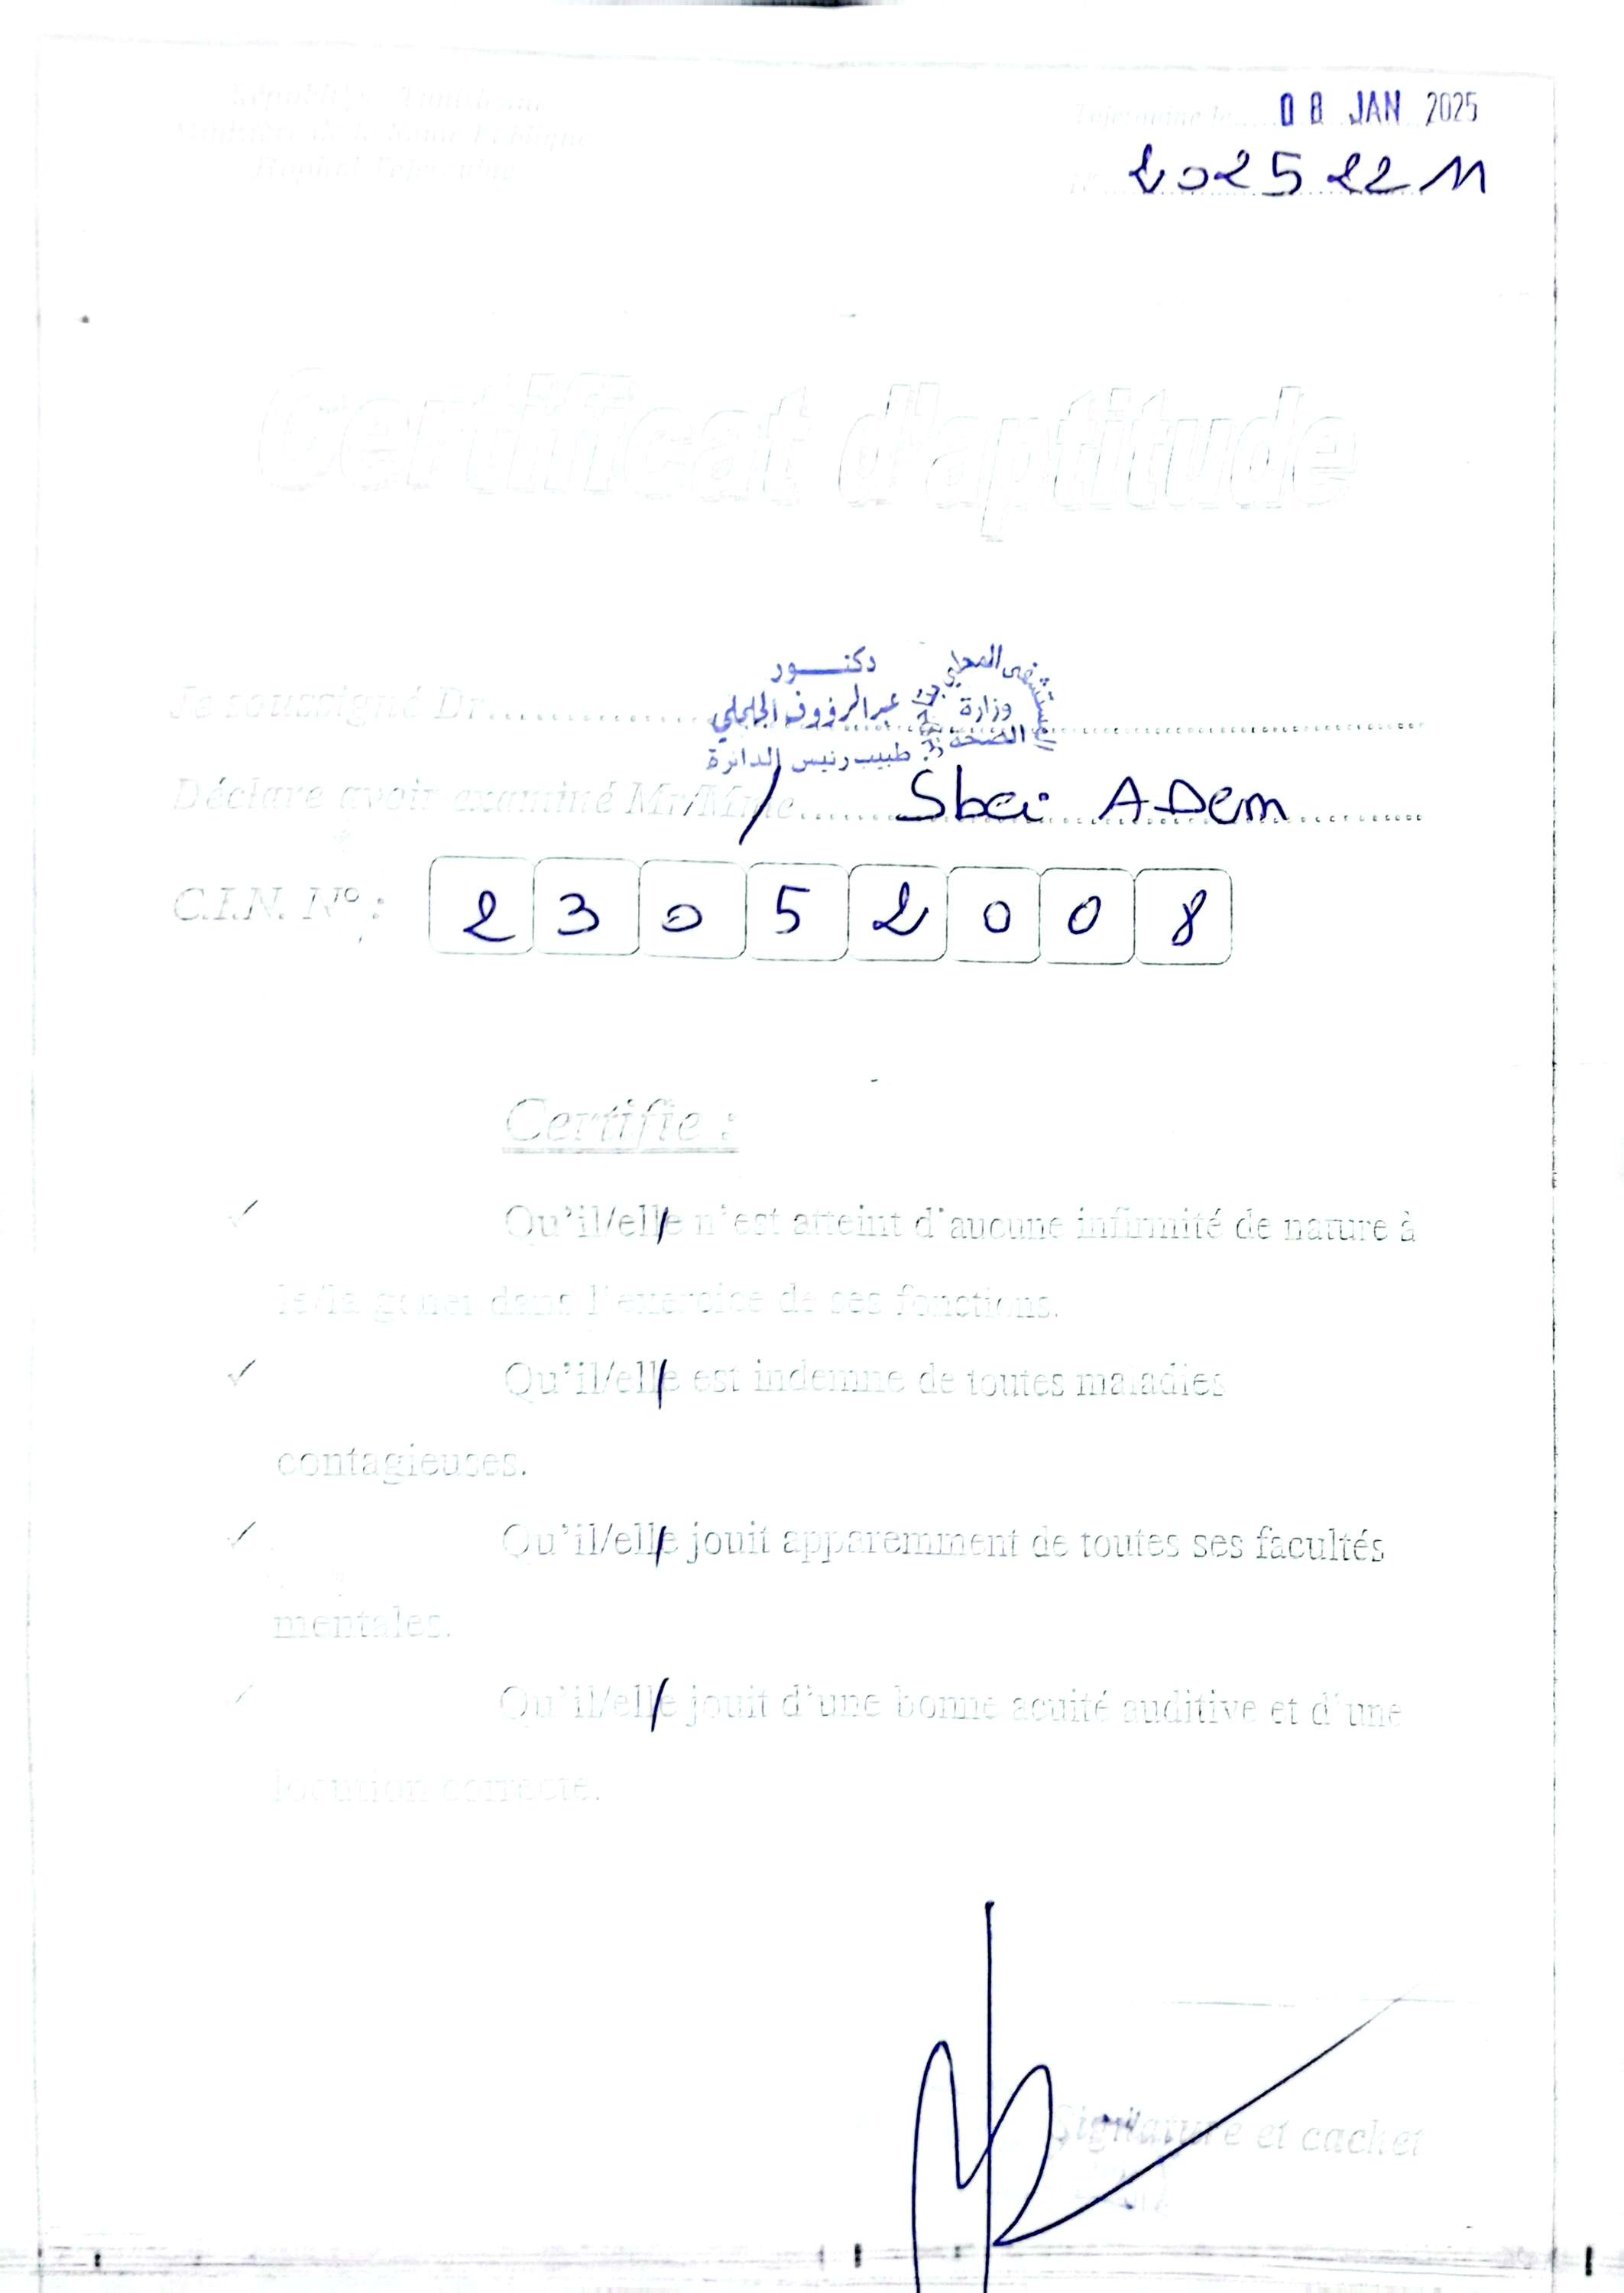 République Tunisienne
Ministère de la Santé Publique
Hôpital Tejerouine
Tejerouine le 08 JAN 2025
N° 20252211
Certificat d'aptitude
دكتور
عبد الرؤوف الجلجلي
طبيب رئيس الدائرة
المستشفى المحلي
وزارة
الصحة
Je soussigné Dr
Déclare avoir examiné Mr/Mme Sbei ADem
C.I.N. N° : 2 3 0 5 2 0 0 8
Certifie :
✓ Qu'il/elle n'est atteint d'aucune infirmité de nature à
le/la gener dans l'exercice de ses fonctions.
✓ Qu'il/elle est indemne de toutes maladies
contagieuses.
✓ Qu'il/elle jouit apparemment de toutes ses facultés
mentales.
✓ Qu'il/elle jouit d'une bonne acuité auditive et d'une
locution correcte.
Signature et cachet